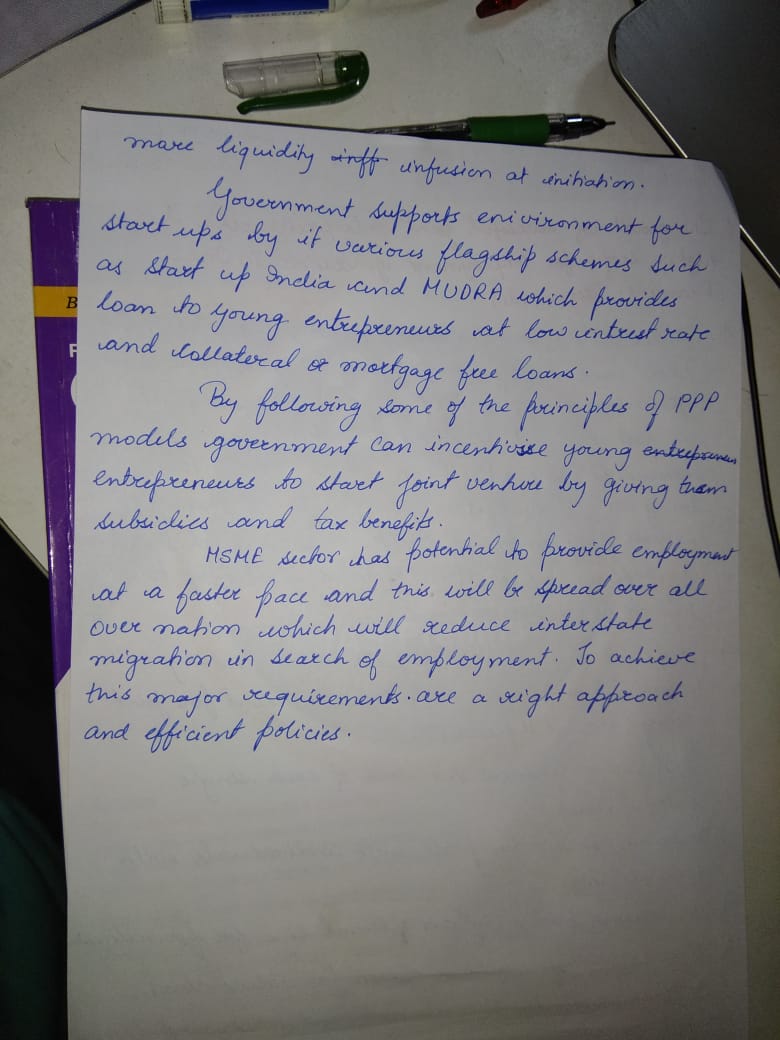 more liquidity inff infusion at initiation.
Government supports enivironment for
start ups by it various flagship schemes such
as Start up India and MUDRA which provides
loan to young entrepreneurs at low intrest rate
and collateral or mortgage free loans.
By following some of the principles of PPP
models government can incentivise young entrepreneurs
entrepreneurs to start joint venture by giving them
subsidies and tax benefits.
MSME sector has potential to provide employment
at a faster pace and this will be spread over all
over nation which will reduce interstate
migration in search of employment. To achieve
this major requirements are a right approach
and efficient policies.
B